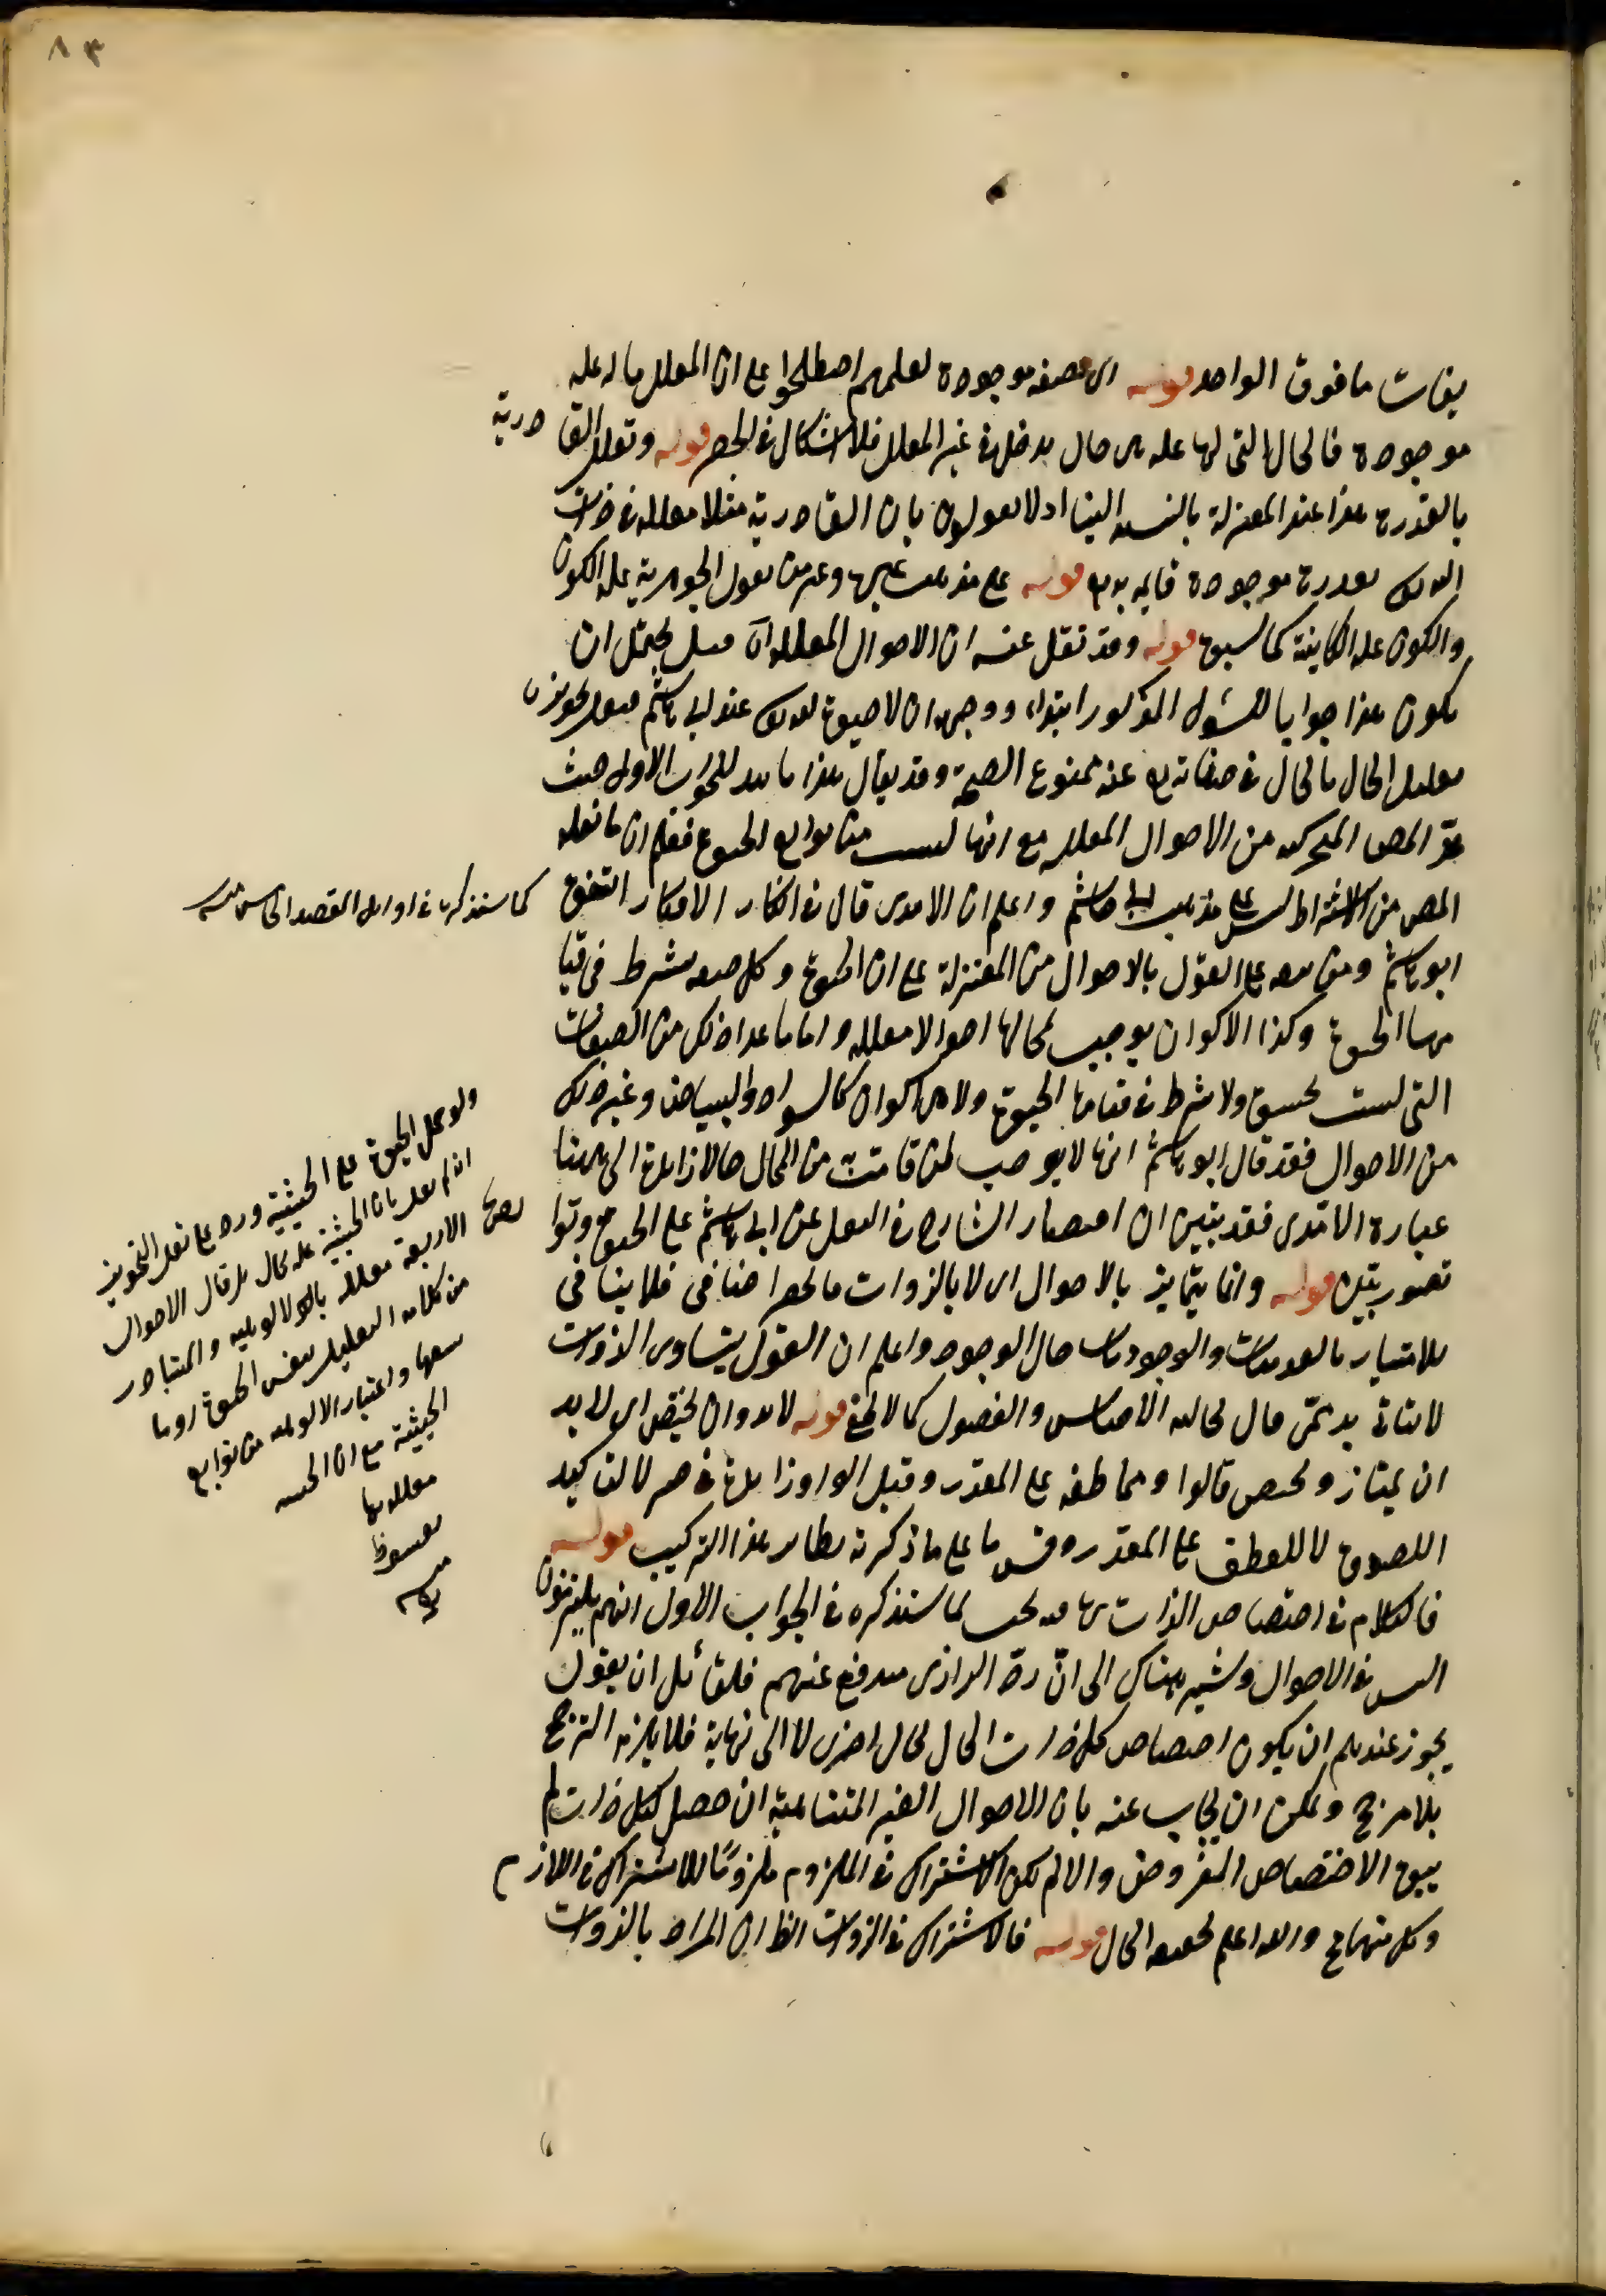 ٨٣
يفات ما فوق الواحد قوله اى بصفة موجودة لعلهم اصطلحوا على ان المعلل ما له علة
موجودة فالحال التى لها علة هى حال يدخل فى غير المعلل فلا اشكال فى الحصر قوله وتعلل القادرية
بالقدرة هذا عند المعتزلة بالنسبة الينا اذ لا يقولون بان القادرية مثلا معللة فى ذات
الله تعالى بقدرة موجودة قايمة به تعالى قوله على مذهب غيره وعد من يقول الجوهرية علة الكون
والكون علة الكاينية كما سبق قوله وقد نقل عنه ان الاحوال المعللة الخ قيل يحتمل ان
يكون هذا جوابا للسؤال المذكور ابتداء ووجهه ان لا حيوة لله تعالى عند ابى هاشم فنقل تجويزه
تعليل الحال بالحال فى صفاته تعالى عنه ممنوع الصحة وقد يقال هذا تاييد للجواب الاول حيث
عد المص المتحركية من الاحوال المعللة مع انها ليست من توابع الحيوة فعلم ان ما نقله
المص من الاشتراط ليس على مذهب ابى هاشم واعلم ان الامدى قال فى ابكار الافكار اتفق
كما سنذكره فى اوايل المقصد الخامس منه
ابو هاشم ومن تبعه على القول بالاحوال من المعتزلة على ان الحيوة وكل صفة يشترط فى قيا
مها الحيوة وكذا الاكوان يوجب لمحالها احوالا معللة واما ما عدا ذلك من الصفات
التى ليست بحيوة ولا شرط فى قيامها الحيوة ولا هى اكوان كالسواد والبياض وغير ذلك
من الاحوال فقد قال ابو هاشم انها لا يوجب لمن قامت به من المحال حالا زايدة الى ههنا
عبارة الامدى فقد تبين ان اقتصار الشارح فى النقل عن ابى هاشم على الحيوة وتوا
بعها تصور بيّن قوله وانما يتمايز بالاحوال اى لا بالذوات فالحصر اضافى فلا ينافى
الامتياز بالعدميات والوجوديات حال الوجود واعلم ان القول بتساوى الذوات
لا يتاتى بدعمن قال بحالية الاجناس والفصول كما لا يخفى قوله لا بد وان يختص اى لا بد
ان يمتاز ويختص قالوا وعاطفة على المقدر وقيل الواو زايدة فى خبر لا لتاكيد
اللصوق لا للعطف على المقدر وقس ما على ما ذكرته نظاير هذا التركيب قوله
فالكلام فى اختصاص الذات بها فيه بحث لما سنذكره فى الجواب الاول انهم يلتزمون
التس فى الاحوال ونشير هناك الى ان رد الرازى مندفع عنهم فلقائل ان يقول
يجوز عندهم ان يكون اختصاص كل ذات الحال لحال اخرى لا الى نهاية فلا يلزم الترجيح
بلا مرجح ويمكن ان يجاب عنه بان الاحوال الغير المتناهية ان حصل لكل ذات لم
يبق الاختصاص المفروض والا لم يكن الاشتراك فى الملزوم ملزوما للاشتراك فى اللازم
وكل منهما مح والله اعلم بحقيقة الحال قوله فالاشتراك فى الذوات الظ ان المراد بالذوات
ولو حمل الحيوة على الحيثية ورد على نقل التجويز
انه لم يعلل بان الحيثية علة لحال بل قال الاحوال
الاربعة معللة بالالوهية والمتبادر
من كلامه التعليل بنفس الحيوة او بما
يتبعها واعتبار الالوهية من توابع
الحيثية مع ان الحيية
معللة بها
تعسف
منه